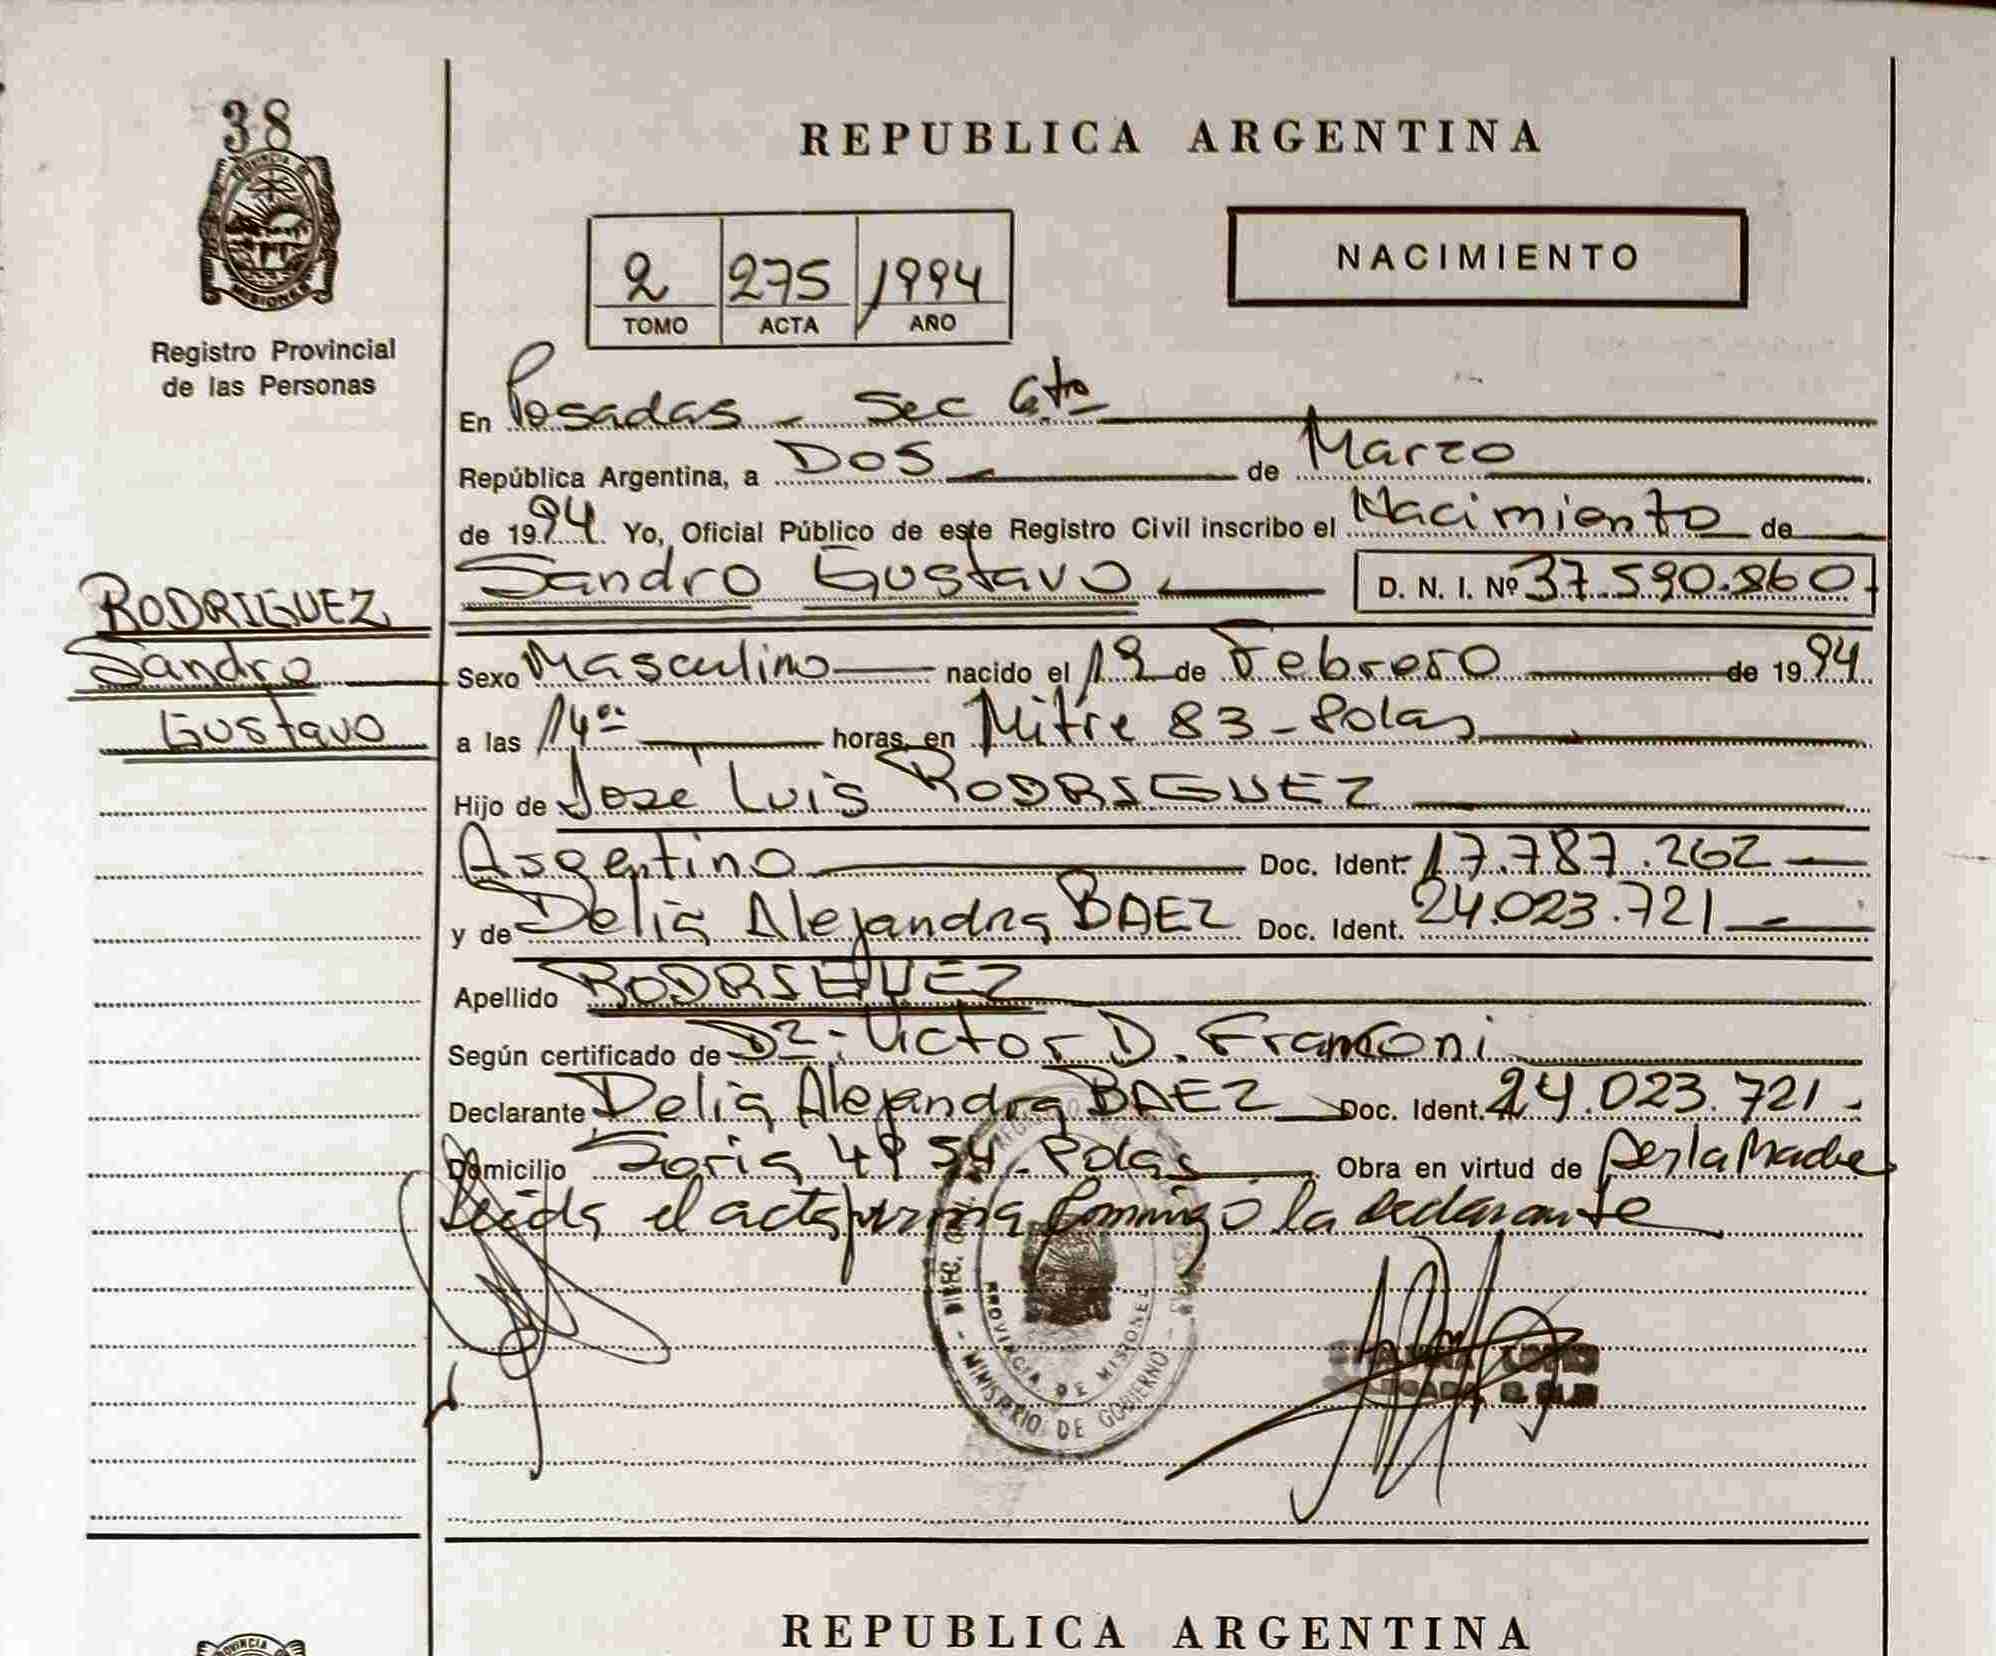 38
PROVINCIA D
MISIONES
Registro Provincial
de las Personas
REPUBLICA ARGENTINA
NACIMIENTO
2 275 1994
TOMO ACTA AÑO
En Posadas - Sec 6ta
República Argentina, a Dos de Marzo
de 1994. Yo, Oficial Público de este Registro Civil inscribo el Nacimiento de
Sandro Gustavo D. N. I. Nº 37.590.860
RODRIGUEZ
Sandro
Gustavo
Sexo Masculino nacido el 19 de Febrero de 1994
a las 14 horas, en Mitre 83 - Pdas
Hijo de José Luis RODRIGUEZ
Argentino Doc. Ident. 17.787.262
y de Delia Alejandra BAEZ Doc. Ident. 24.023.721
Apellido RODRIGUEZ
Según certificado de Dr. Victor D. Franconi
Declarante Delia Alejandra BAEZ Doc. Ident. 24.023.721
Domicilio Soria 4954 - Pdas Obra en virtud de ser la Madre
Leída el acta firma conmigo la declarante
DIREC. 
PROVINCIA DE MISIONES
- MINISTERIO DE GOBIERNO -
REPUBLICA ARGENTINA
PROVINCIA